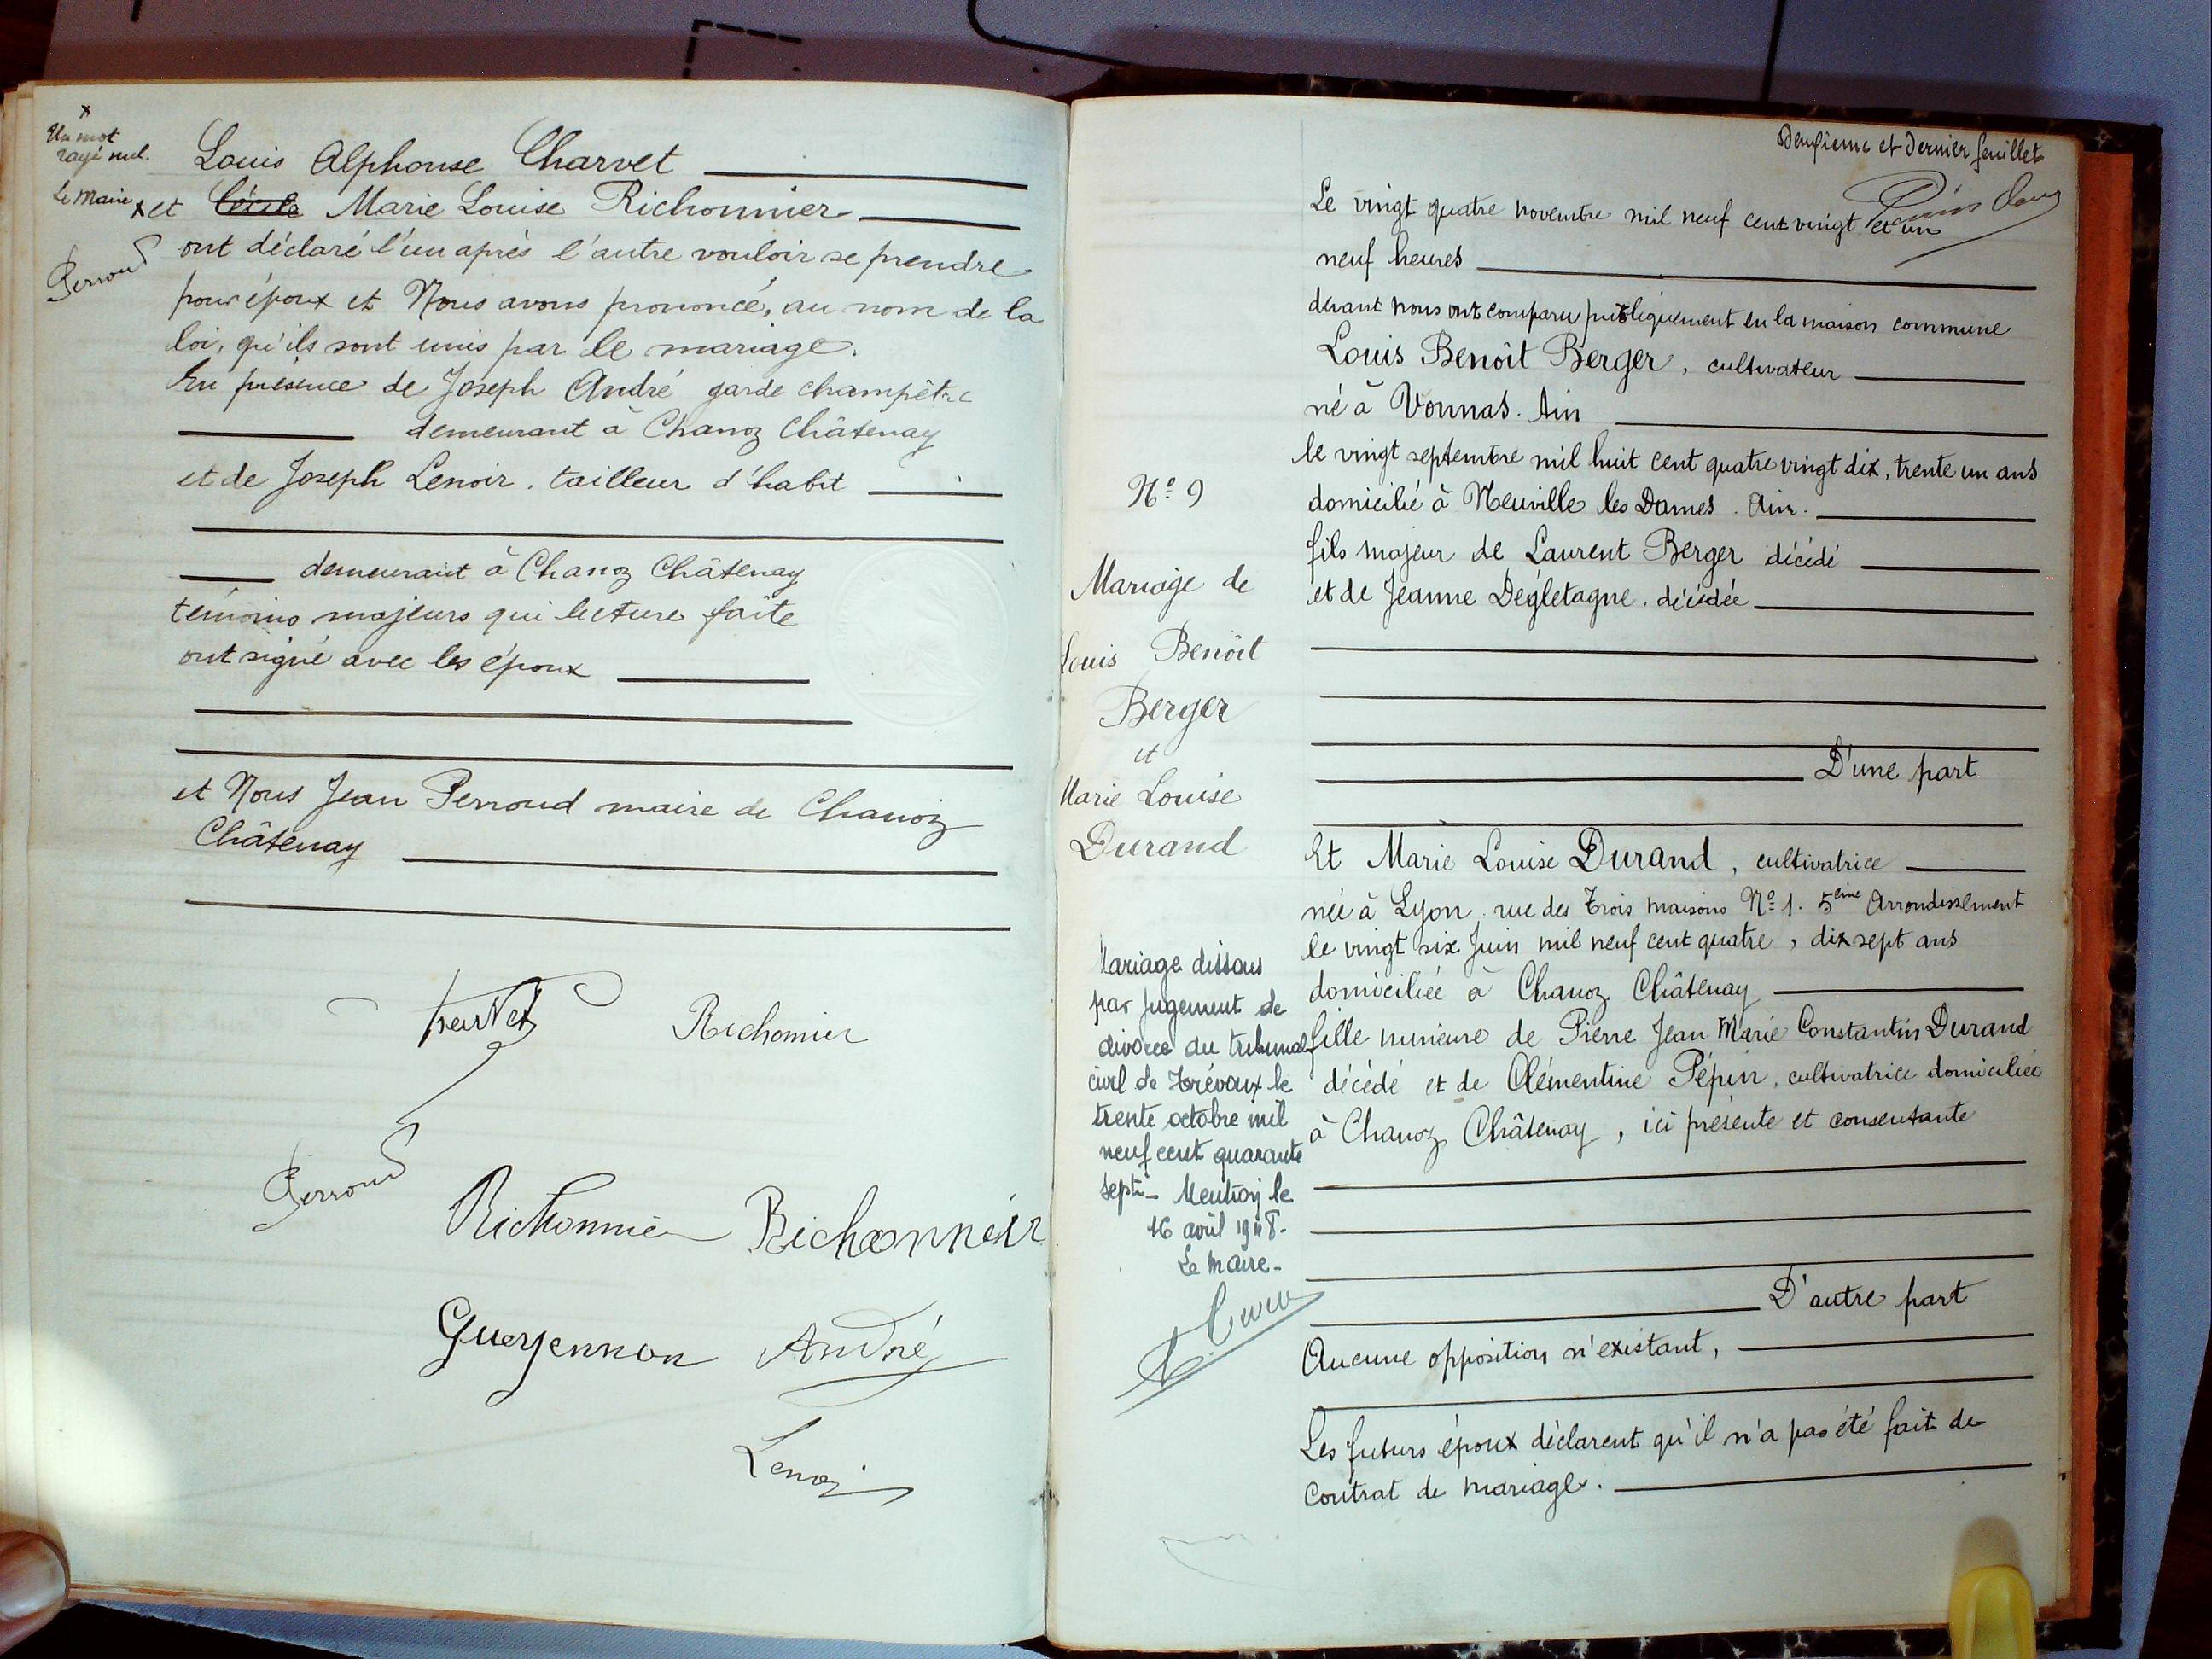 x
Un mot
rayé nul.
Le Maire
Perroud
Louis Alphonse Charvet
x et Cécile Marie Louise Richonnier
ont déclaré l'un après l'autre vouloir se prendre
pour époux et Nous avons prononcé, au nom de la
loi, qu'ils sont unis par le mariage.
En présence de Joseph André garde champêtre
demeurant à Chanoz Châtenay
et de Joseph Lenoir, tailleur d'habit
demeurant à Chanoz Châtenay
témoins majeurs qui lecture faite
ont signé avec les époux
et Nous Jean Perroud maire de Chanoz
Châtenay
Charvet Richonier
Perroud
Richonnier Richonneir
Gueyennon André
Lenoir
Deuxième et Dernier feuillet
Le vingt quatre novembre mil neuf cent vingt et un
neuf heures
devant nous ont comparu publiquement en la maison commune
Louis Benoît Berger, cultivateur
né à Vonnas. Ain
le vingt septembre mil huit cent quatre vingt dix, trente un ans
domicilié à Neuville les Dames. Ain.
fils majeur de Laurent Berger décédé
et de Jeanne Dégletagne, décédée
D'une part
Et Marie Louise Durand, cultivatrice
née à Lyon, rue des Trois maisons No 1. 5ème Arrondissement
le vingt six Juin mil neuf cent quatre, dix sept ans
domiciliée à Chanoz Châtenay
fille mineure de Pierre Jean Marie Constantin Durand
décédé et de Clémentine Pépin, cultivatrice domiciliée
à Chanoz Châtenay, ici présente et consentante
D'autre part
Aucune opposition n'existant,
Les futurs époux déclarent qu'il n'a pas été fait de
contrat de mariage.
No 9
Mariage de
Louis Benoît
Berger
et
Marie Louise
Durand
Mariage dissous
par jugement de
divorce du tribunal
civil de Trévoux le
trente octobre mil
neuf cent quarante
sept. Mention le
16 avril 1948.
Le Maire.